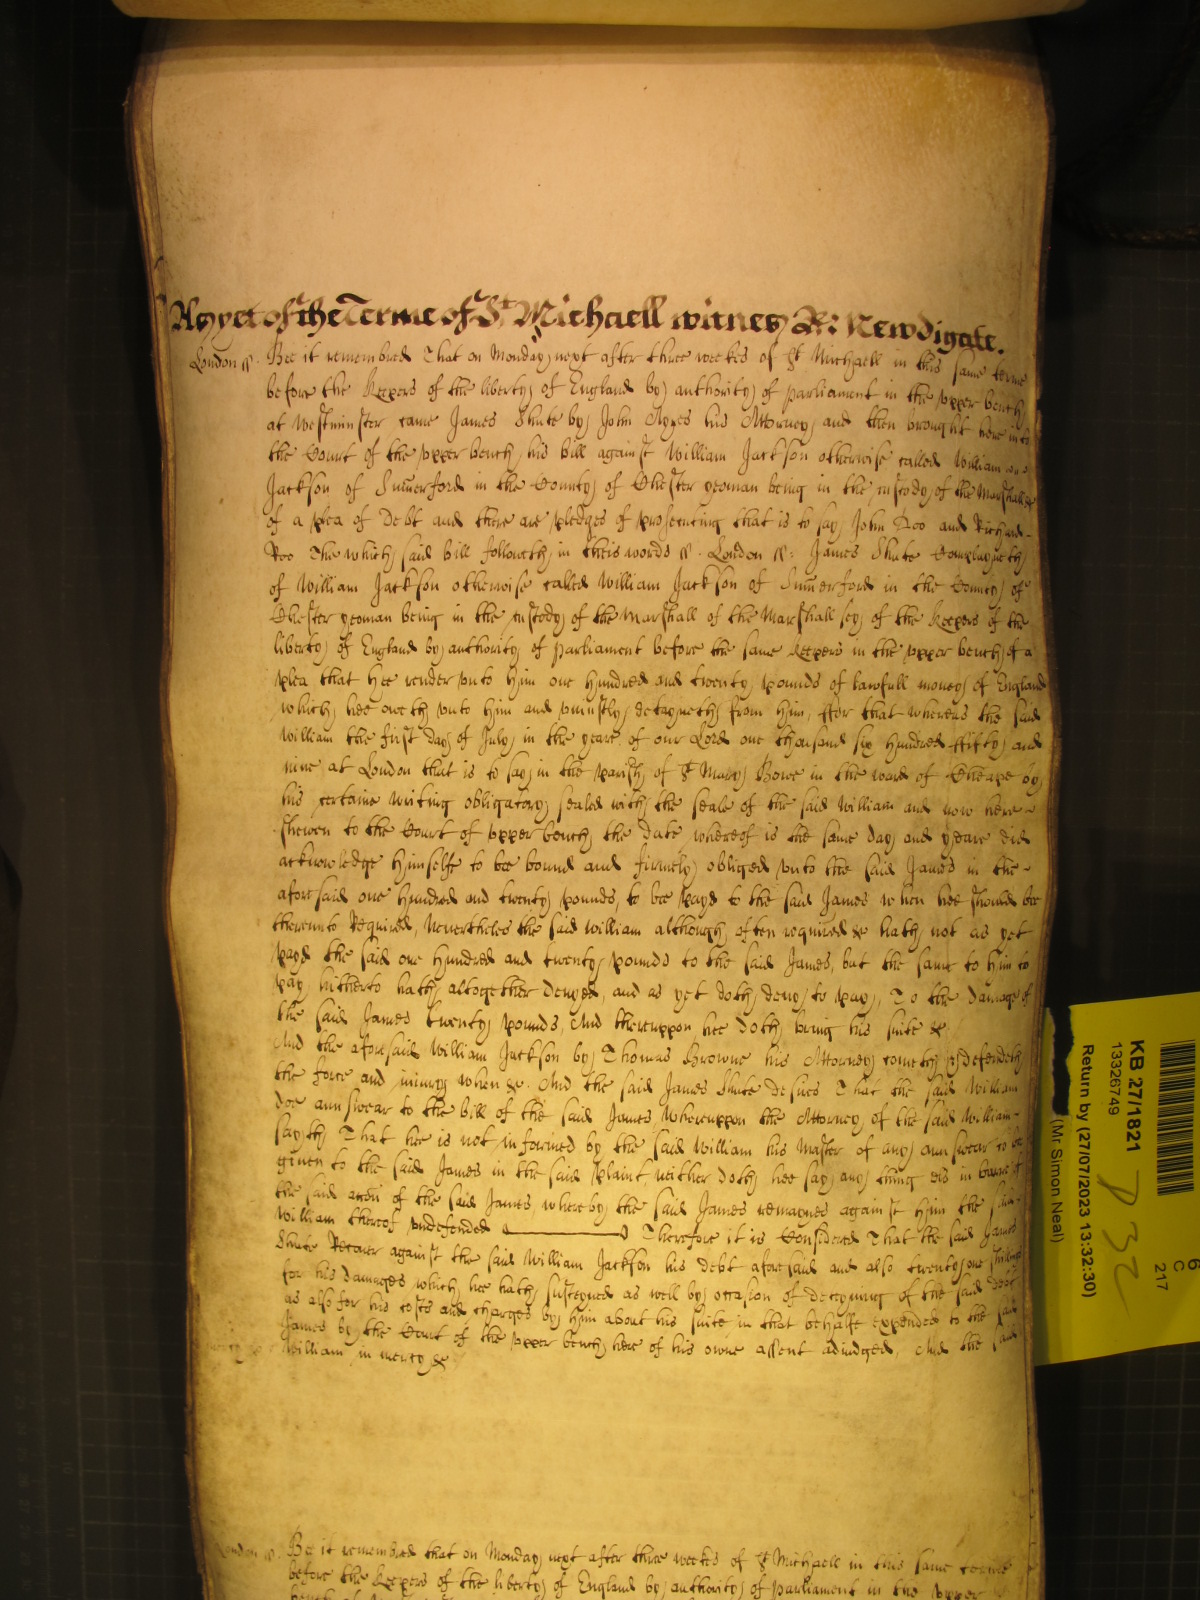 As yet of the Terme of St Michaell witnes R: Newdigate.
London ss. Bee it remembred That on Monday next after three weekes of St Michaell in this same terme
before the Keepers of the liberty of England by authority of parliament in the vpper bench
at Westminster came James Shute by John Ayres his Attorney and then brought here into
the Court of the vpper bench his bill against William Jackson otherwise called William
Jackson of Sumerford in the County of Chester yeoman being in the custody of the Marshall &c
of a plea of Debt and there are pledges of prosecuting that is to say John Doo and Richard
Roo The which said bill followeth in theis words ss. London ss: James Shute Complayneth
of William Jackson otherwise called William Jackson of Sumerford in the County of
Chester yeoman being in the custody of the Marshall of the Marshallsey of the Keepers of the
liberty of England by authority of parliament before the same Keepers in the vpper bench of a
plea that hee render vnto him one hundred and twenty pounds of lawfull money of England
which hee oweth vnto him and vniustly detayneth from him, ffor that whereas the said
William the first day of July in the yeare of our Lord one thousand six hundred ffifty and
nine at London that is to say in the parish of St Mary Bowe in the ward of Cheape by
his certaine writing obligatory sealed with the seale of the said William and now here
shewen to the Court of vpper bench the date whereof is the same day and yeare did
acknowledge himselfe to bee bound and firmely obliged vnto the said James in the
aforesaid one hundred and twenty pounds, to bee payd to the said James when hee should bee
therevnto Required, Neverthelès the said William although often required &c hath not as yet
payd the said one hundred and twenty pounds to the said James, but the same to him to
pay hitherto hath altogether denyed, and as yet doth deny to pay, To the damage of
the said James twenty pounds, And therevppon hee doth bring his suite &c
And the aforesaid William Jackson by Thomas Browne his Attorney cometh & defendeth
the force and iniury when &c. And the said James Shute desires That the said William
doe answear to the bill of the said James, wherevppon the Attorney of the said William
sayth That hee is not informed by the said William his Master of any answear to be
given to the said James in the said plaint neither doth hee say any thing els in barre of
the said accon of the said James, whereby the said James remaynes against him the said
William thereof vndefended Therefore it is Considered That the said James
Shute Recover against the said William Jackson his debt aforesaid and also twenty one shillings
for his damages which hee hath susteyned as well by occasion of deteyning of the said debt
as also for his costs and charges by him about his suite in that behalfe expended to the said
James by the Court of the vpper bench here of his owne assent adiudged, And the said
William in mercy &c
London ss. Bee it remembred that on Monday next after three weekes of St Michaell in this same terme
before the Keepers of the liberty of England by authority of parliament in the vpper
KB 27/1821
13326749
Return by (27/07/2023 13:32:30)
(Mr Simon Neal)
6
C
217